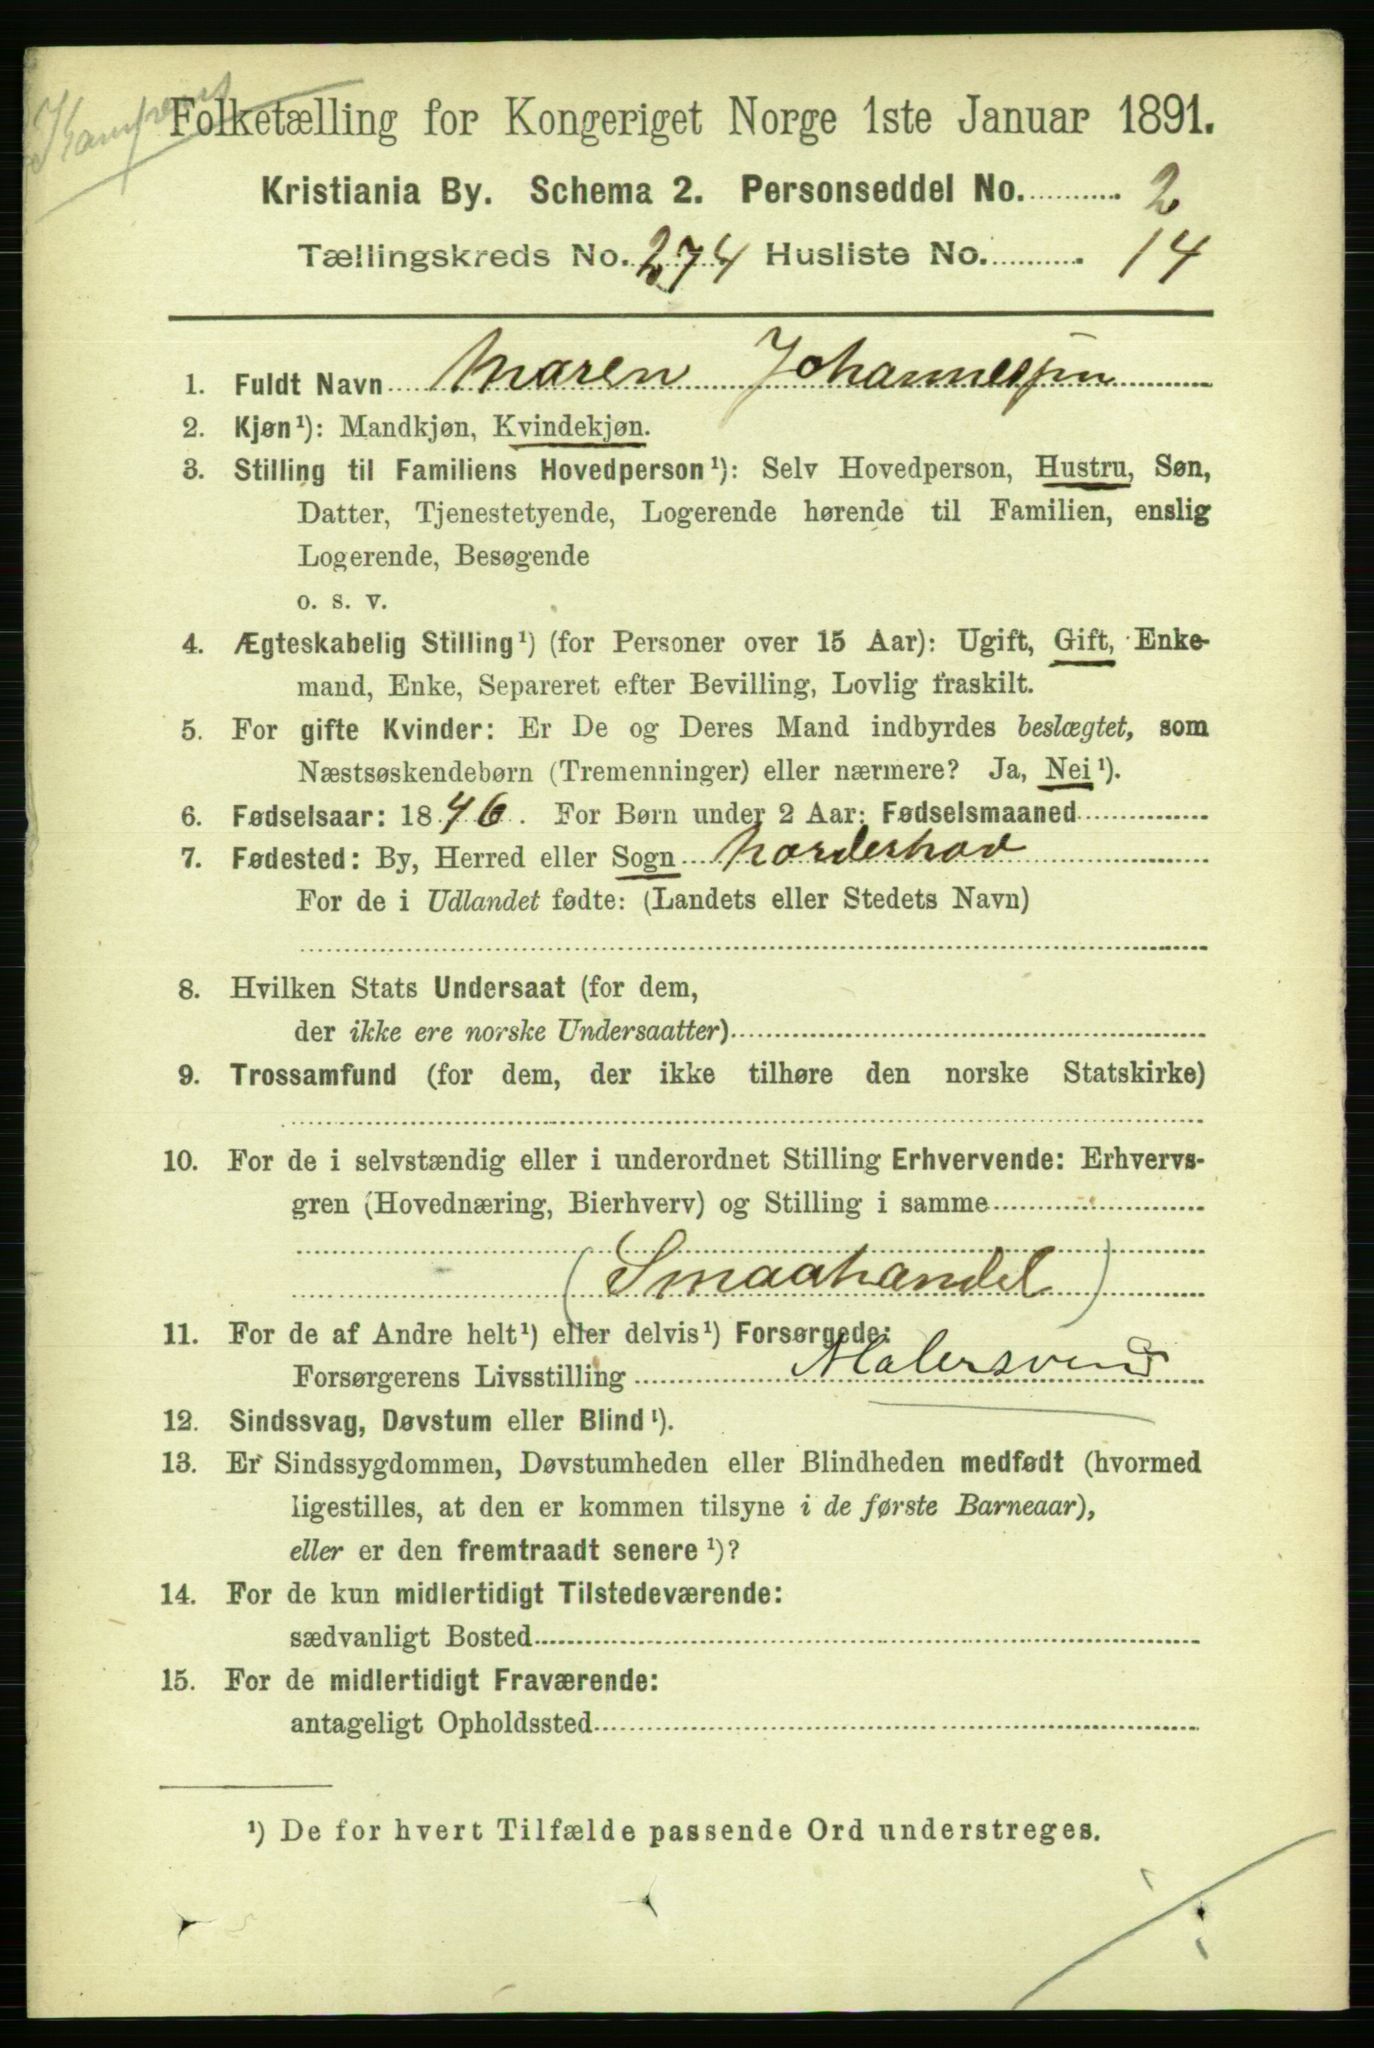 Kampens
Folketælling for Kongeriget Norge 1ste Januar 1891.
Kristiania By. Schema 2. Personseddel No. 2
Tællingskreds No. 274 Husliste No. 14
1. Fuldt Navn Maren Johannesen
2. Kjøn¹): Mandkjøn, Kvindekjøn.
3. Stilling til Familiens Hovedperson¹): Selv Hovedperson, Hustru, Søn,
Datter, Tjenestetyende, Logerende hørende til Familien, enslig
Logerende, Besøgende
o. s. v.
4. Ægteskabelig Stilling¹) (for Personer over 15 Aar): Ugift, Gift, Enke-
mand, Enke, Separeret efter Bevilling, Lovlig fraskilt.
5. For gifte Kvinder: Er De og Deres Mand indbyrdes beslægtet, som
Næstsøskendebørn (Tremenninger) eller nærmere? Ja, Nei¹).
6. Fødselsaar: 1846. For Børn under 2 Aar: Fødselsmaaned
7. Fødested: By, Herred eller Sogn Norderhov
For de i Udlandet fødte: (Landets eller Stedets Navn)
8. Hvilken Stats Undersaat (for dem,
der ikke ere norske Undersaatter)
9. Trossamfund (for dem, der ikke tilhøre den norske Statskirke)
10. For de i selvstændig eller i underordnet Stilling Erhvervende: Erhvervs-
gren (Hovednæring, Bierhverv) og Stilling i samme
(Smaahandel)
11. For de af Andre helt¹) eller delvis¹) Forsørgede:
Forsørgerens Livsstilling Malersvend
12. Sindssvag, Døvstum eller Blind¹).
13. Er Sindssygdommen, Døvstumheden eller Blindheden medfødt (hvormed
ligestilles, at den er kommen tilsyne i de første Barneaar),
eller er den fremtraadt senere¹)?
14. For de kun midlertidigt Tilstedeværende:
sædvanligt Bosted
15. For de midlertidigt Fraværende:
antageligt Opholdssted
¹) De for hvert Tilfælde passende Ord understreges.